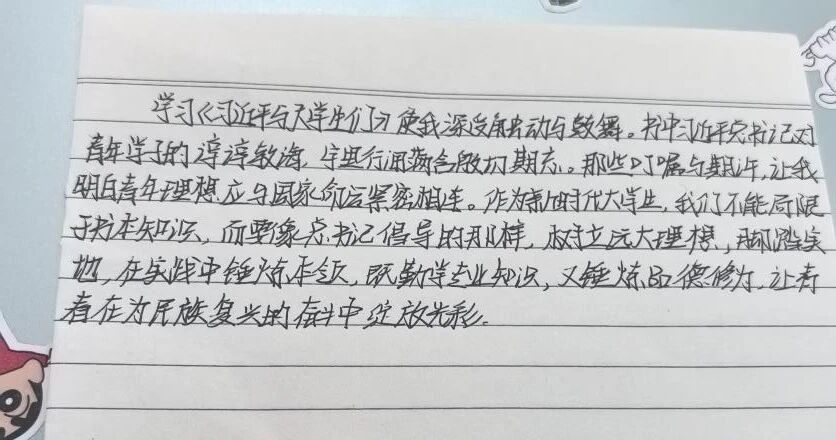 学习《习近平与大学生们》使我深受触动与鼓舞。书中习近平总书记对
青年学子的谆谆教诲，字里行间满含殷切期志。那些叮嘱与期许，让我
明白青年理想应与国家命运紧密相连。作为新时代大学生，我们不能局限
于书本知识，而要象总书记倡导的那样，树立远大理想，脚踏实
地，在实践中锤炼本领，既勤学专业知识，又锤炼品德修为，让青
春在为民族复兴的奋斗中绽放光彩。